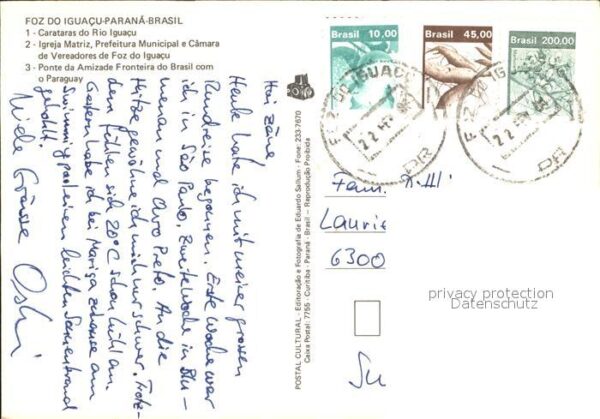 FOZ DO IGUAÇU-PARANÁ-BRASIL
1 - Carataras do Rio Iguaçu
2 - Igreja Matriz, Prefeitura Municipal e Câmara
de Vereadores de Foz do Iguaçu
3 - Ponte da Amizade Fronteira do Brasil com
o Paraguay
Brasil 10,00
Brasil 45,00
Brasil 200,00
FOZ DO IGUAÇU
DR
DR
Hoi zäme
Heute habe ich mit meiner grossen
Rundreise begonnen. Erste Woche war
ich in São Paulo. Zweite Woche in Blu-
menau und Ouro Preto. An die
Hitze gewöhne ich mich nur schwer. Trotz-
dem fühlen sich 20°C schon kühl an.
Gestern habe ich bei Marisa zuhause am
Swimmingpool einen leichten Sonnenbrand
geholt.
Viele Grüsse Oski
POSTAL CULTURAL - Editoração e Fotografia de Eduardo Sallum - Fone: 233-7670
Caixa Postal: 7755 - Curitiba - Paraná - Brasil - Reprodução Proibida
Fam.
Laurie
6300
Su
privacy protection
Datenschutz